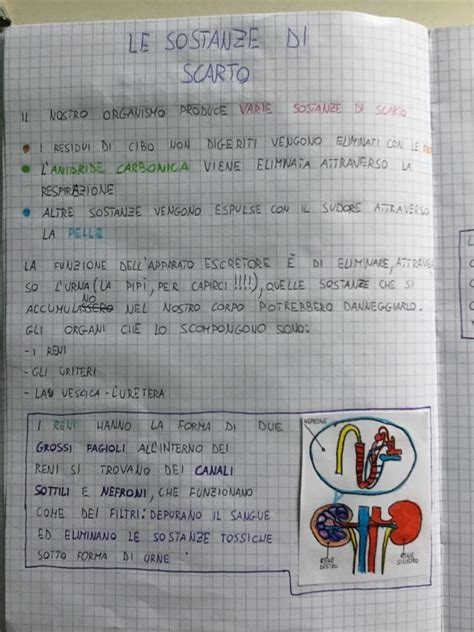 LE SOSTANZE DI
SCARTO
IL NOSTRO ORGANISMO PRODUCE VARIE SOSTANZE DI SCARTO
• I RESIDUI DI CIBO NON DIGERITI VENGONO ELIMINATI CON LE
• L'ANIDRIDE CARBONICA VIENE ELIMNATA ATTRAVERSO LA
RESPIRAZIONE
• ALTRE SOSTANZE VENGONO ESPULSE CON IL SUDORE ATTRAVERSO
LA PELLE
LA FUNZIONE DELL'APPARATO ESCRETORE È DI ELIMINARE, ATTRAVER
SO L'URNA (LA PIPÌ, PER CAPIRCI!!!!), QUELLE SOSTANZE CHE SI
ACCUMULANO NEL NOSTRO CORPO POTREBBERO DANNEGGIARLO.
GLI ORGANI CHE LO SCOMPONGONO SONO:
- I RENI
- GLI URITERI
- LA VESCICA - L'URETERA
I RENI HANNO LA FORMA DI DUE
GROSSI FAGIOLI ALL'INTERNO DEI
RENI SI TROVANO DEI CANALI
SOTTILI E NEFRONI, CHE FUNZIONANO
COME DEI FILTRI: DEPURANO IL SANGUE
ED ELIMINANO LE SOSTANZE TOSSICHE
SOTTO FORMA DI URNE
NEFRONE
RENE
DESTRO
RENE
SINISTRO